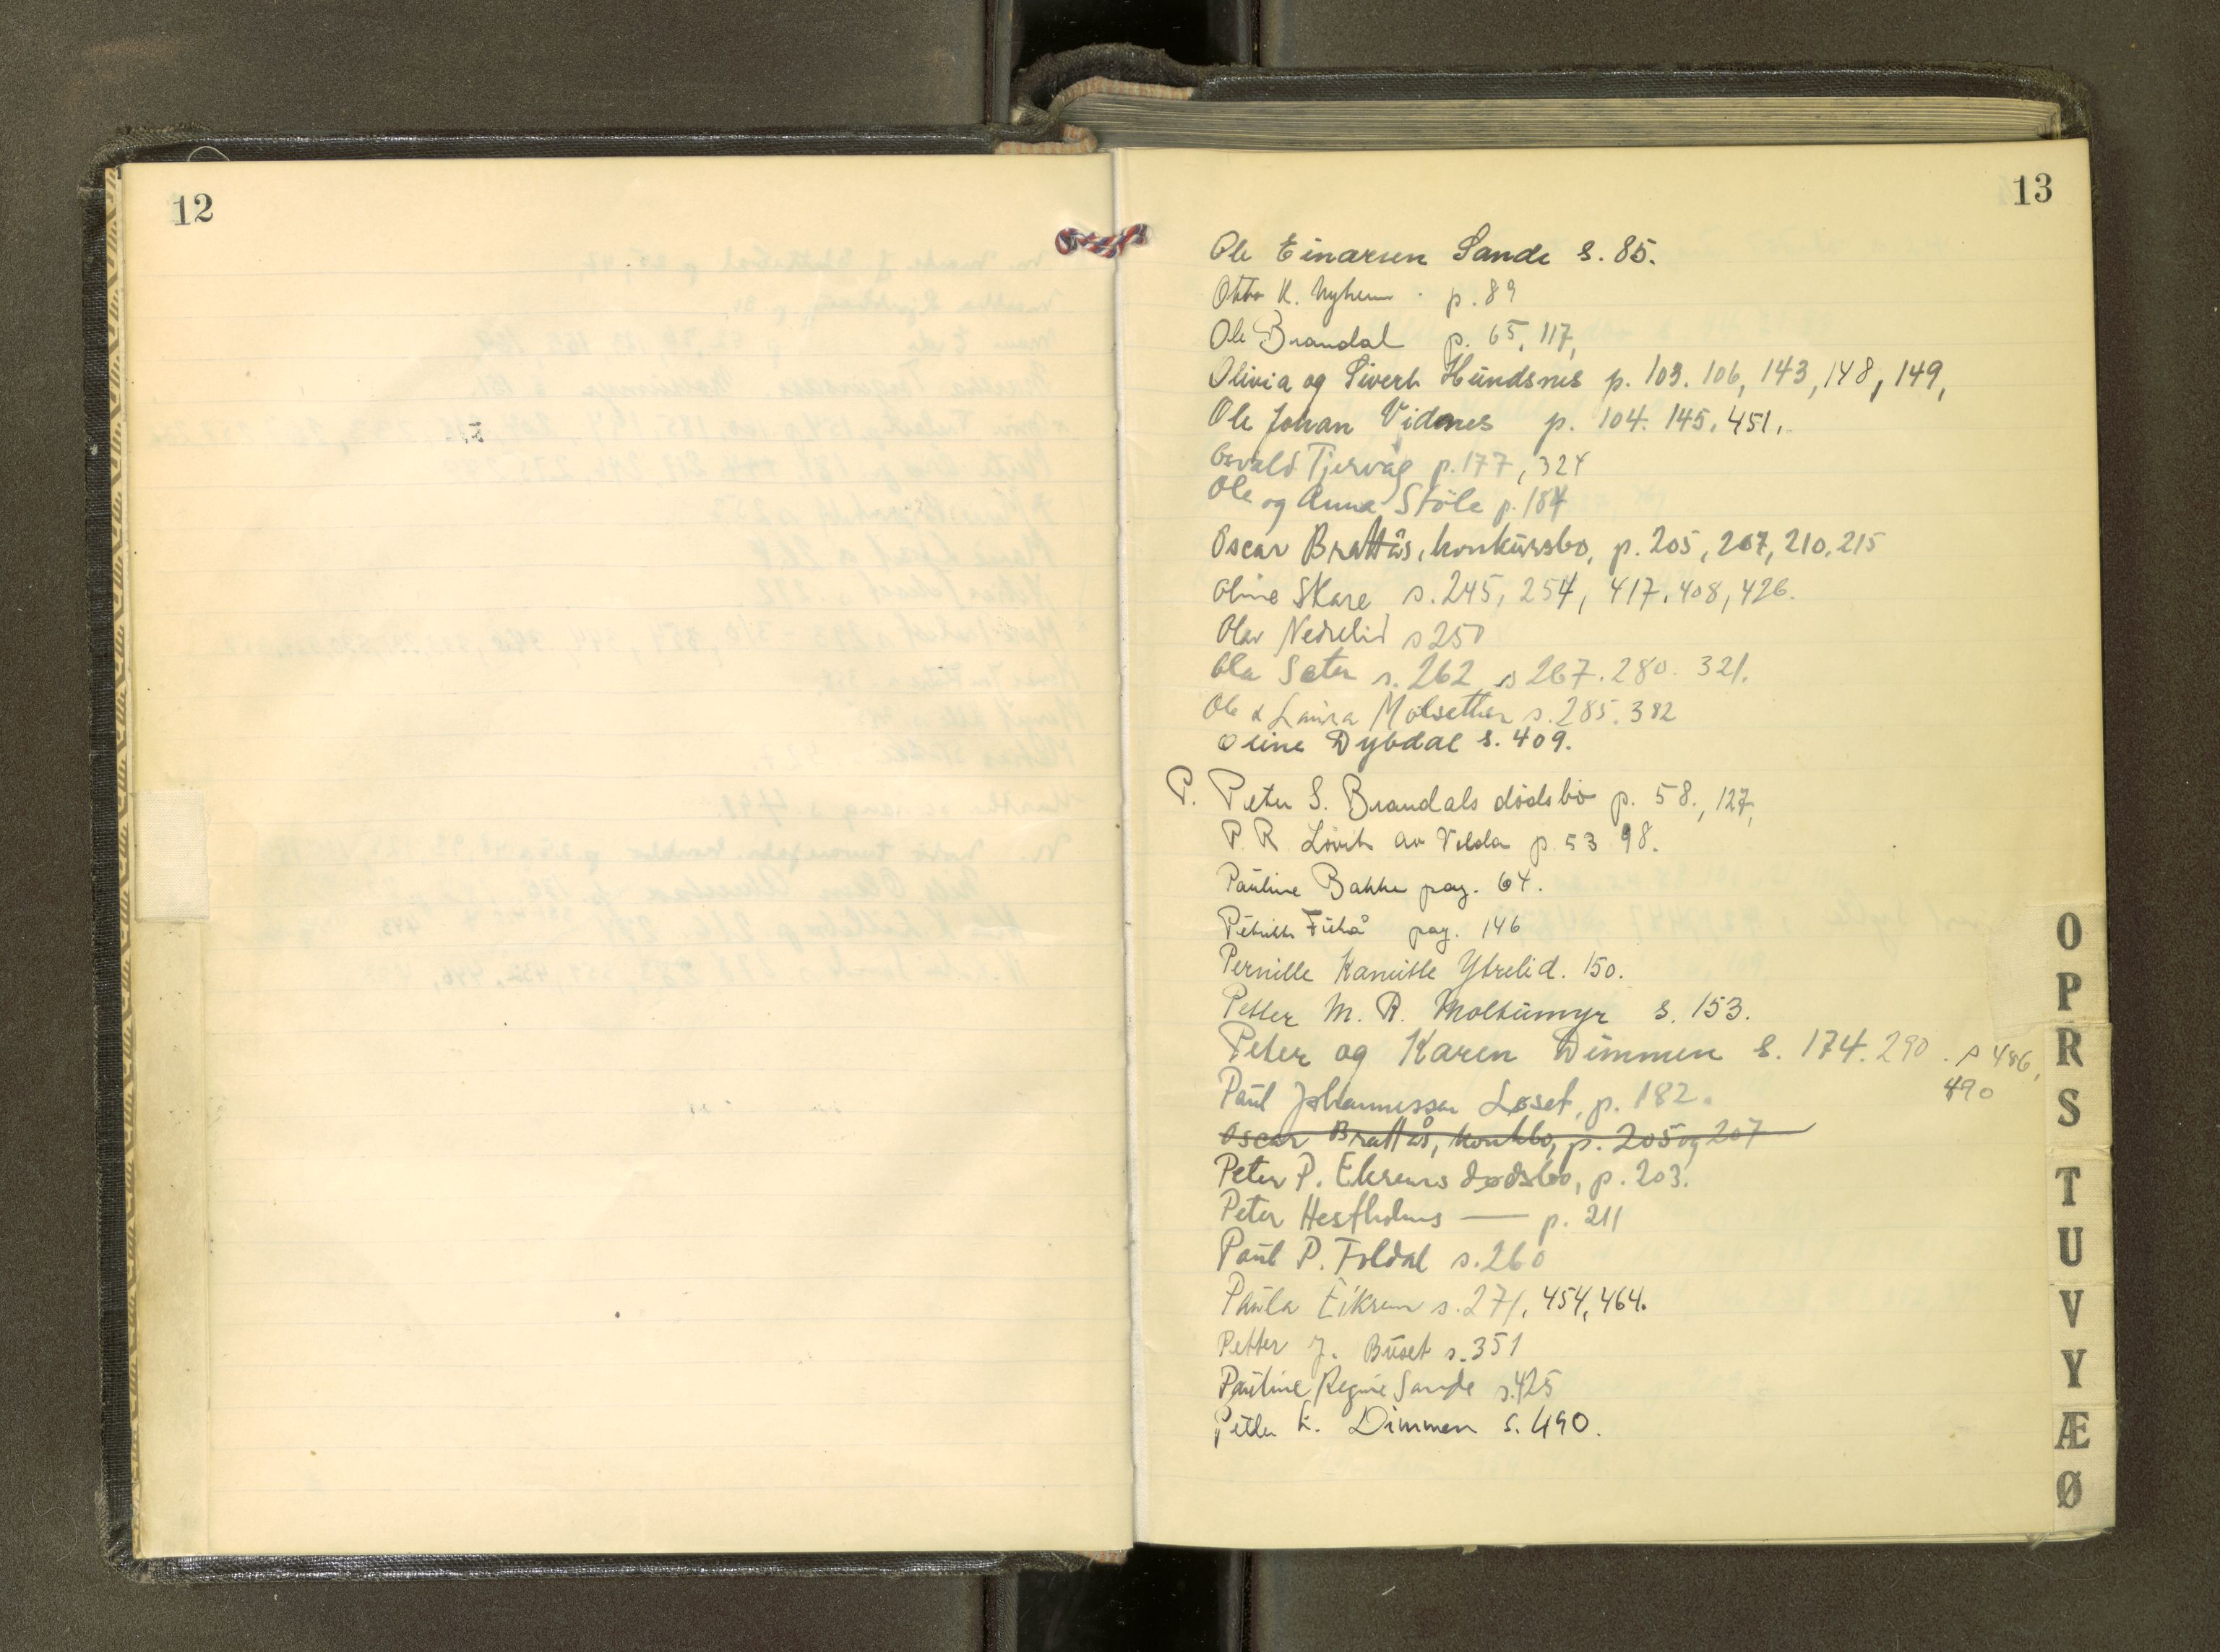 12
13
Ole Einarsen Sande s. 85.
Otto K. Nyhem p. 89
Ole Brandal p. 65, 117,
Olivia og Sivert Hundsnes p. 103. 106, 143, 148, 149,
Ole Johan Vidnes p. 104. 145, 451,
Osvald Tjervåg p. 177, 324
Ole og Anna Støle p. 184
Oscar Brattås, konkursbo, p. 205, 207, 210, 215
Oline Skare s. 245, 254, 417, 408, 426.
Olav Nedrelid s 250
Ola Sæter s. 262 s 267. 280. 321.
Ole & Laura Molsether s. 285. 382
Oline Dybdal s. 409.
P. Peter S. Brandals dødsbo p. 58., 127,
P. R. Løvik av Volda p. 53 98.
Pauline Bakke pag. 64.
pag. 146
Pernille Kamille Ytrelid. 150.
Petter M. R. Moltumyr s. 153.
Peter og Karen Dimmen s. 174. 290. s 486,
490
Paul Johannessen Løset, p. 182.
Oscar Brattås, konkbo, p. 205 og 207
Peter P. Eksems dødsbo, p. 203.
Peter Hestholms — p. 211
Paul P. Foldal s. 260
Paula Eiksem s. 271, 454, 464.
Petter J. Buset s. 351
Pauline Regine Sande s. 425
Petter E. Dimmen s. 490.
O
P
R
S
T
U
V
Y
Æ
Ø